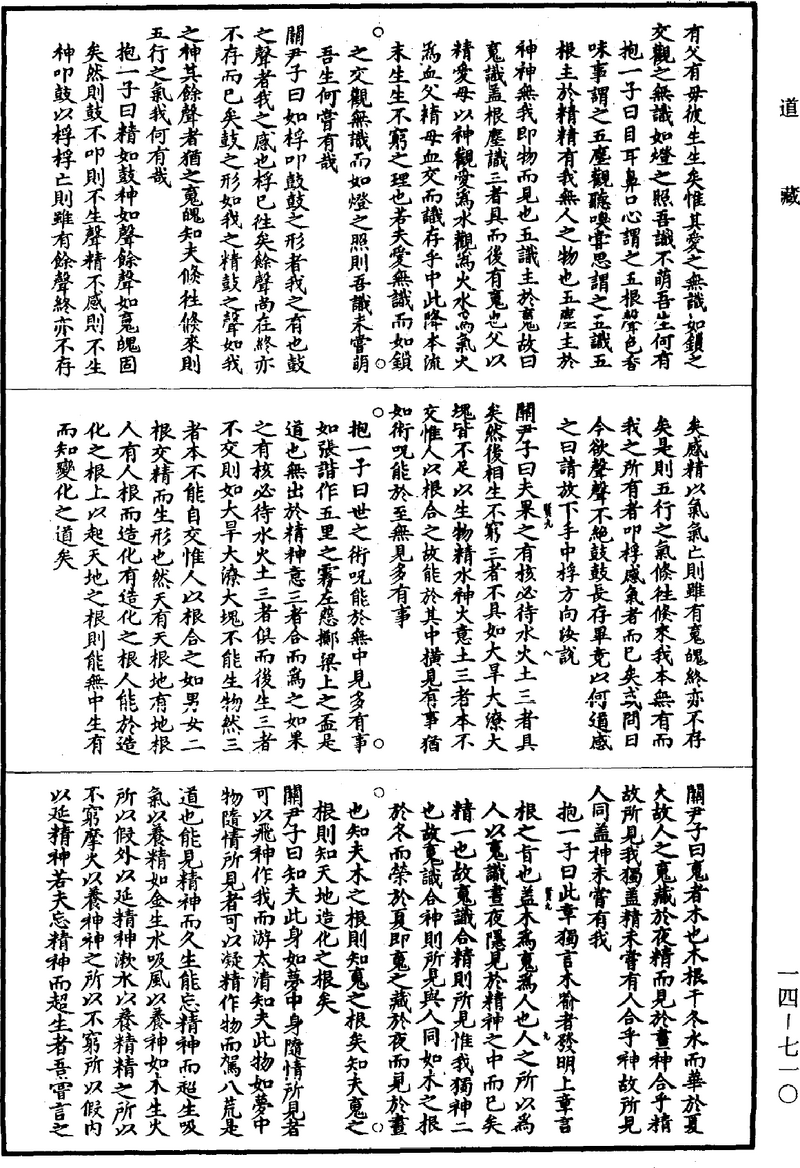 道藏
有父有母彼生生矣惟其愛之無識如鎖之
交觀之無識如燈之照吾識不萌吾生何有
抱一子曰目耳鼻口心謂之五根聲色香
味事謂之五塵觀聽嗅嘗思謂之五識五
根主於精精有我無人之物也五塵主於
神神無我即物而見也五識主於䰟故曰
䰟識蓋根塵識三者具而後有䰟也父以
精愛母以神觀愛為水觀為火水為氣火
為血父精母血交而識存乎中此降本流
末生生不窮之理也若夫愛無識而如鎖
之交觀無識而如燈之照則吾識未嘗萌
吾生何嘗有哉
關尹子曰如桴叩鼓鼓之形者我之有也鼓
之聲者我之感也桴已往矣餘聲尚在終亦
不存而已矣鼓之形如我之精鼓之聲如我
之神其餘聲者猶之䰟魄知夫倏往倏來則
五行之氣我何有哉
抱一子曰精如鼓神如聲餘聲如䰟魄固
矣然則鼓不叩則不生聲精不感則不生
神叩鼓以桴桴亡則雖有餘聲終亦不存
矣感精以氣氣亡則雖有䰟魄終亦不存
矣是則五行之氣倏往倏來我本無有而
我之所有者叩桴感氣者而已矣或問曰
今欲聲聲不絕鼓鼓長存畢竟以何道感
之曰請放下手中桴方向汝說
關尹子曰夫果之有核必待水火土三者具
矣然後相生不窮三者不具如大旱大潦大
塊皆不足以生物精水神火意土三者本不
交惟人以根合之故能於其中橫見有事猶
如術呪能於至無見多有事
抱一子曰世之術呪能於無中見多有事
如張諧作五里之霧左慈擲梁上之盃是
道也無出於精神意三者合而為之如果
之有核必待水火土三者俱而後生三者
不交則如大旱大潦大塊不能生物然三
者本不能自交惟人以根合之如男女二
根交精而生形也然天有天根地有地根
人有人根而造化有造化之根人能於造
化之根上以起天地之根則能無中生有
而知變化之道矣
關尹子曰䰟者木也木根于冬水而華於夏
火故人之䰟藏於夜精而見於晝神合乎精
故所見我獨蓋精未嘗有人合乎神故所見
人同蓋神未嘗有我
抱一子曰此章獨言木喻者發明上章言
根之旨也蓋木為䰟為人也人之所以為
人以䰟識晝夜隱見於精神之中而已矣
精一也故䰟識合精則所見惟我獨神二
也故䰟識合神則所見與人同如木之根
於冬而榮於夏即䰟之藏於夜而見於晝
也知夫木之根則知䰟之根矣知夫䰟之
根則知天地造化之根矣
關尹子曰知夫此身如夢中身隨情所見者
可以飛神作我而游太清知夫此物如夢中
物隨情所見者可以凝精作物而駕八荒是
道也能見精神而久生能忘精神而超生吸
氣以養精如金生水吸風以養神如木生火
所以假外以延精神漱水以養精精之所以
不窮摩火以養神神之所以不窮所以假內
以延精神若夫忘精神而超生者吾嘗言之
一四－七一〇